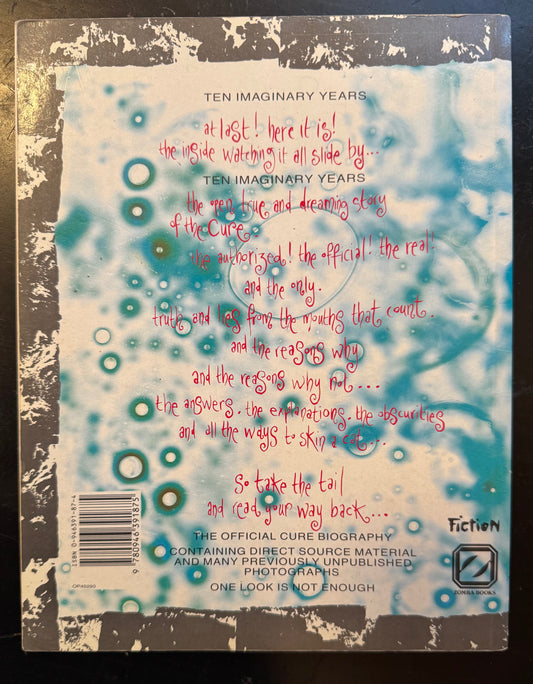 TEN IMAGINARY YEARS
at last! here it is!
the inside watching it all slide by...
TEN IMAGINARY YEARS
the open, true and dreaming story
of the Cure.
the authorized! the official! the real!
and the only.
truth and lies from the mouths that count.
and the reasons why
and the reasons why not...
the answers. the explanations. the obscurities
and all the ways to skin a cat...
so take the tail
and read your way back...
THE OFFICIAL CURE BIOGRAPHY
CONTAINING DIRECT SOURCE MATERIAL
AND MANY PREVIOUSLY UNPUBLISHED
PHOTOGRAPHS
ONE LOOK IS NOT ENOUGH
ISBN 0-946391-87-4
9 780946 391875
OP/45290
Fiction
ZOMBA BOOKS